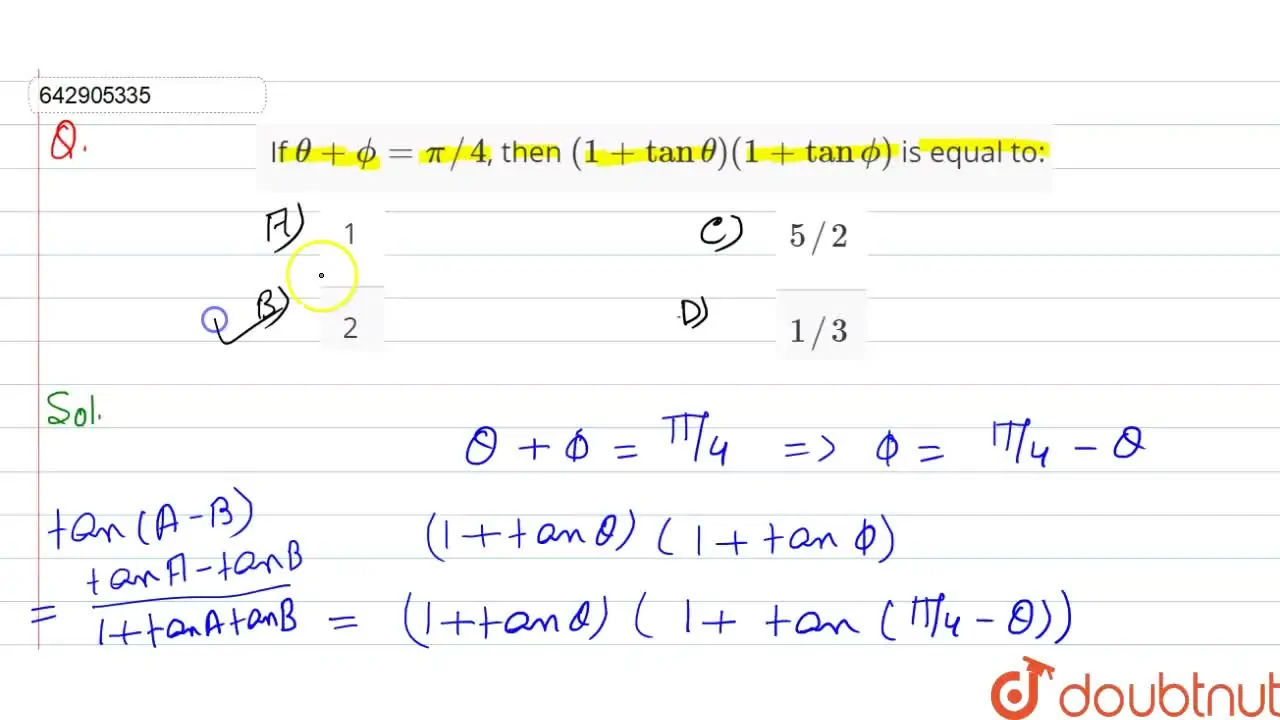 642905335
Q.
If θ + ϕ = π/4, then (1 + tan θ)(1 + tan ϕ) is equal to:
A) 1
C) 5/2
B) 2
D) 1/3
Sol.
θ + ϕ = π/4 => ϕ = π/4 - θ
tan(A-B)
(1+tanθ)(1+tanϕ)
= (tanA-tanB)/(1+tanAtanB)
= (1+tanθ)(1+tan(π/4-θ))
doubtnut